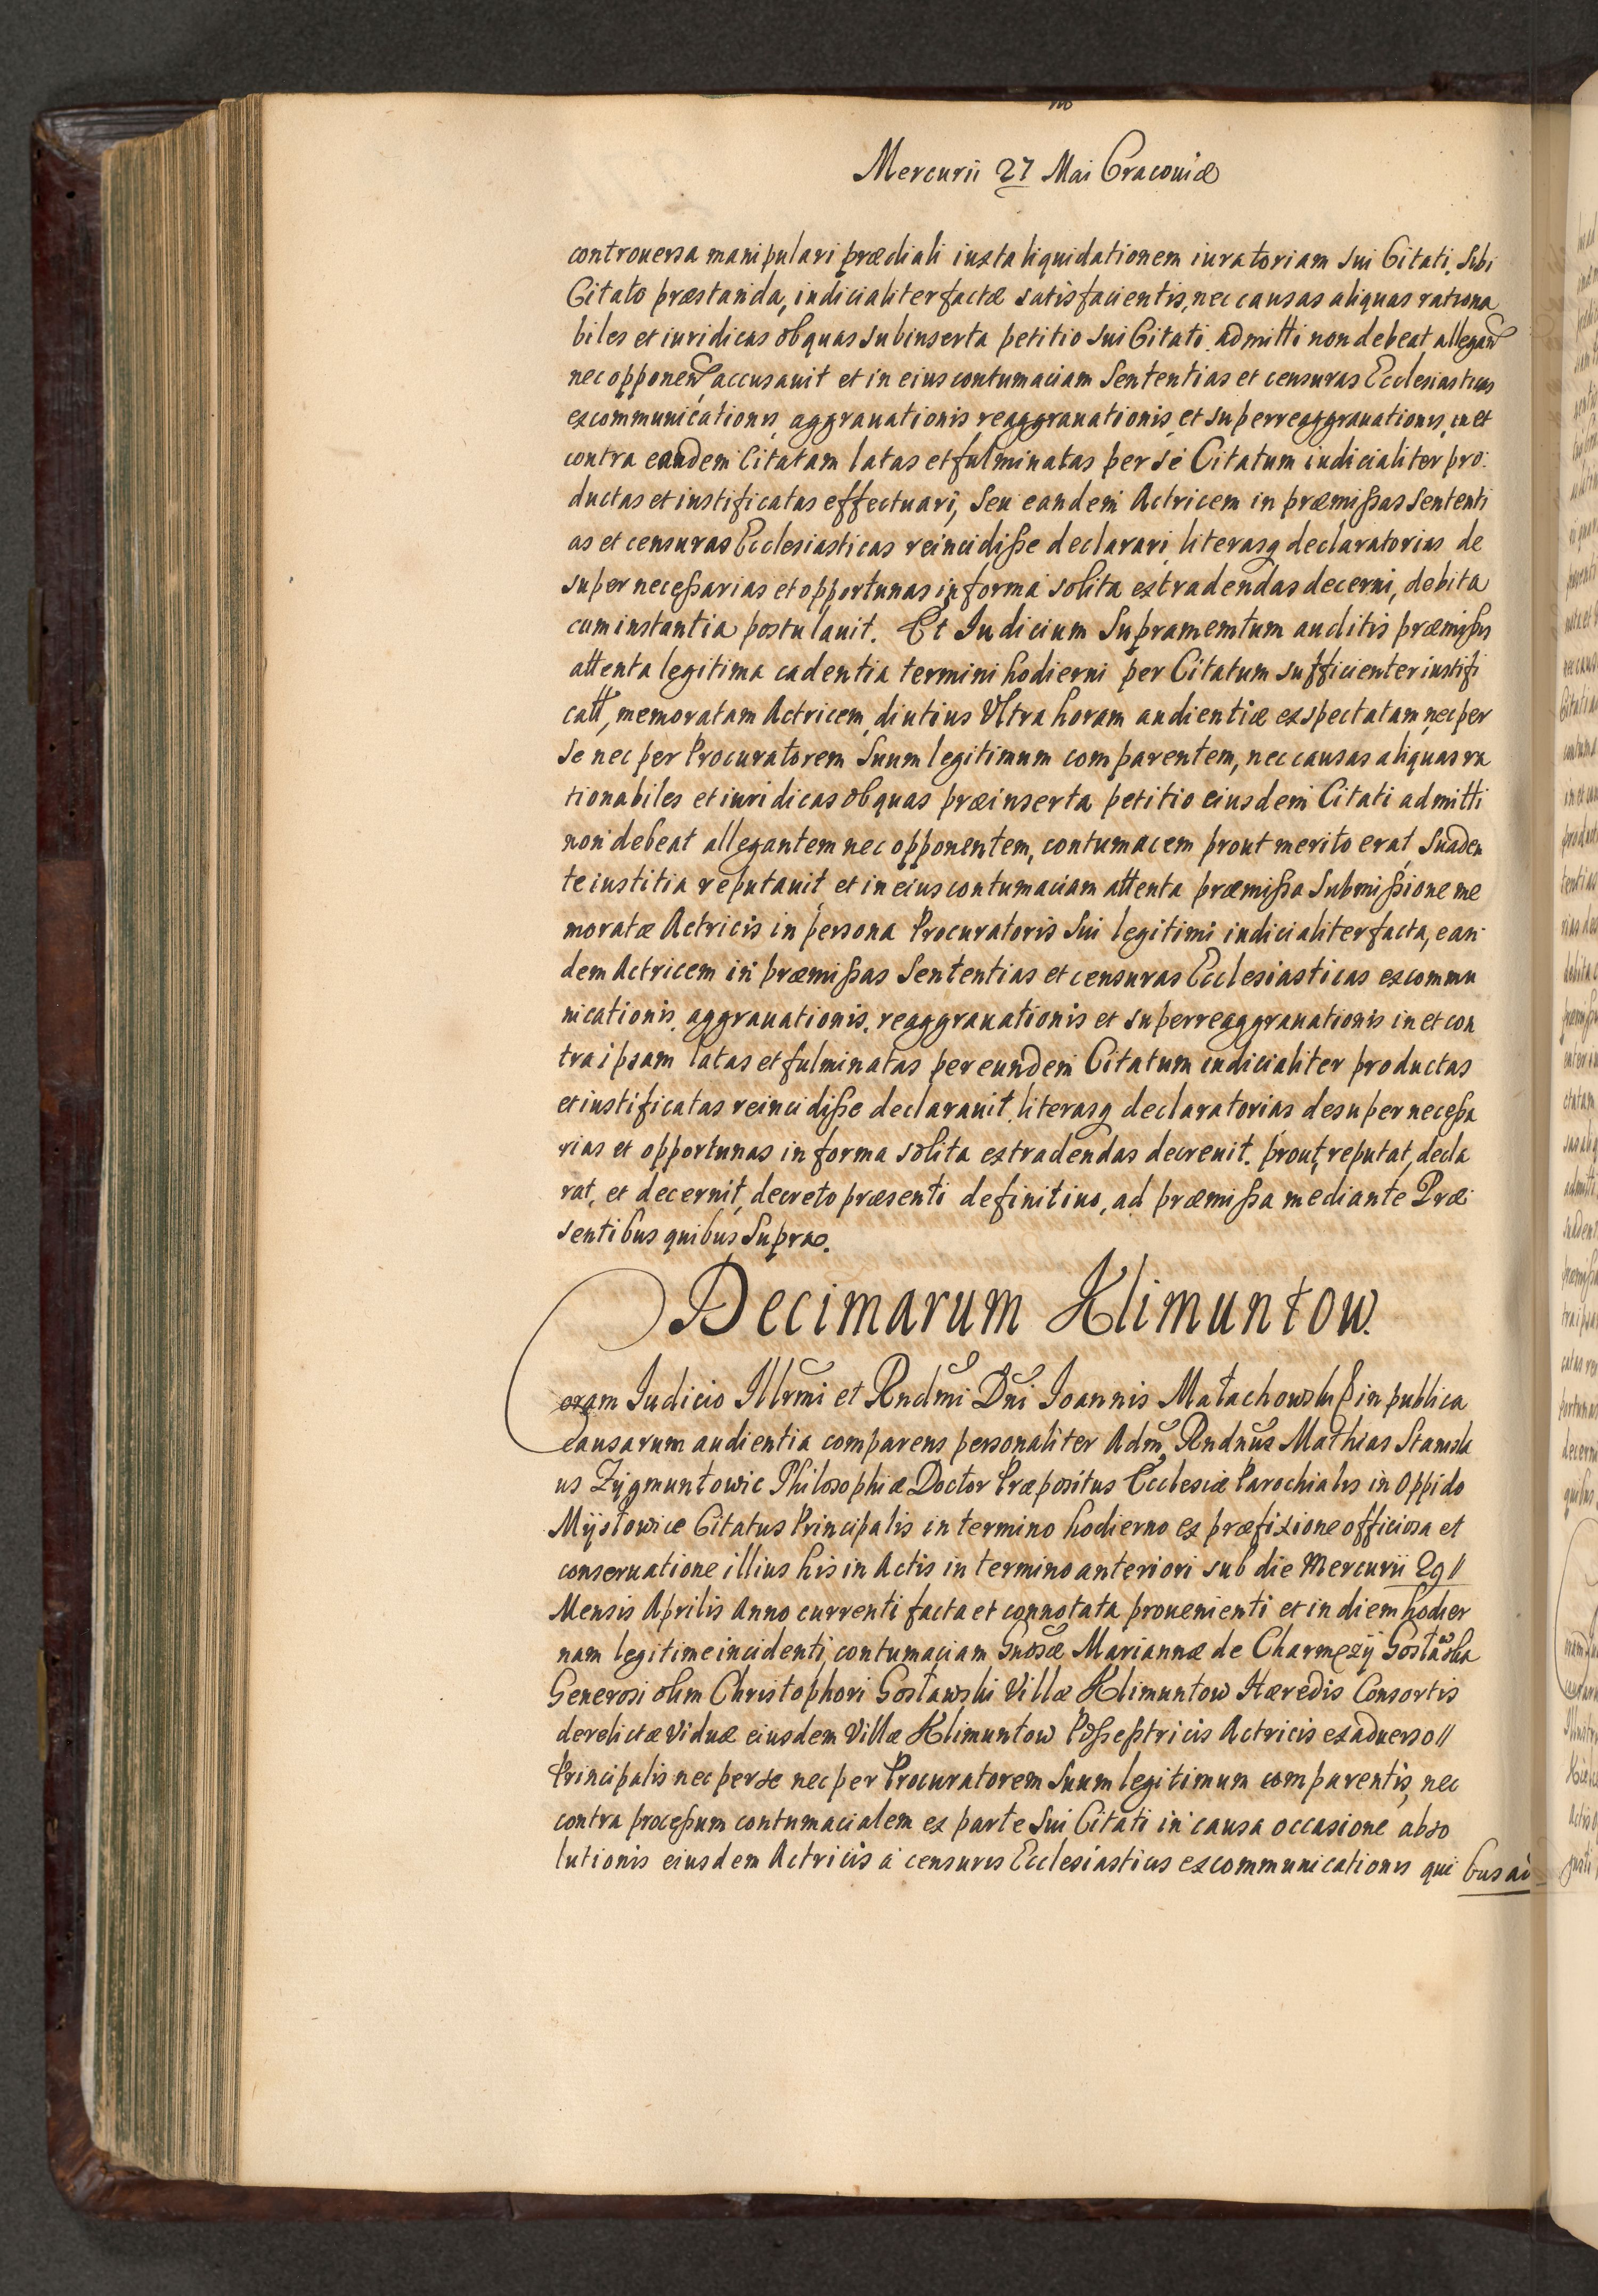 Mercurii 27 Mai Cracouiæ
controuersa manipulari prædiali iuxta liquidationem iuratoriam sui Citati, sibi
Citato præstanda, iudicialiter factæ satisfacientis, nec causas aliquas rationa
biles et iuridicas ob quas subinserta petitio sui Citati admitti non debeat allegan
nec opponen, accusauit et in eius contumaciam Sententias et censuras Ecclesiasticas
excommunicationis, aggrauationis, reaggrauationis, et superreaggrauationis, in et
contra eandem Citatam latas et fulminatas per se Citatum iudicialiter pro
ductas et iustificatas effectuari, seu eandem Actricem in præmißas Sententi
as et censuras Ecclesiasticas reincidiße declarari, literasq declaratorias de
super neceßarias et opportunas in forma solita extradendas decerni, debita
cum instantia postulauit. Et Iudicium Supramemtum auditis præmißis
attenta legitima cadentia termini hodierni per Citatum sufficienter iustifi
catt, memoratam Actricem, diutius Vltra horam audientiæ expectatam, nec per
se nec per Procuratorem Suum legitimum comparentem, nec causas aliquas ra
tionabiles et iuridicas ob quas præinserta petitio eiusdem Citati admitti
non debeat allegantem nec opponentem, contumacem prout merito erat, Suaden
te iustitia reputauit et in eius contumaciam attenta præmißa Submißione me
moratæ Actricis in persona Procuratoris Sui legitimi iudicialiter facta, ean
dem Actricem in præmißas Sententias et censuras Ecclesiasticas excommu
nicationis, aggrauationis, reaggrauationis et superreaggrauationis in et con
tra ipsam latas et fulminatas per eundem Citatum iudicialiter productas
et iustificatas reincidiße declarauit, literasq declaratorias desuper neceßa
rias et opportunas in forma solita extradendas decreuit. prout, reputat, decla
rat, et decernit, decreto præsenti definitiuo, ad præmißa mediante Præ
sentibus quibus Supra.
Decimarum Klimuntow.
Coram Iudicio Illrmi et Rndmi Dni Ioannis Małachowski in publica
causarum audientia comparens personaliter Adm, Rndnus Mathias Stanisla
us Zygmuntowic Philosophiæ Doctor Præpositus Ecclesiæ Parochialis in Oppido
Mysłowice Citatus Principalis in termino hodierno ex præfixione officiosa et
conseruatione illius his in Actis in termino anteriori sub die Mercurii 29 //
Mensis Aprilis Anno currenti facta et connotata prouenienti et in diem hodier
nam legitime incidenti, contumaciam Gnosæ Mariannæ de Charmęzy Gosławska
Generosi olim Christophori Gosławski Villæ Klimuntow Hæredis Consortis
derelictæ Viduæ eiusdem Villæ Klimuntow Poßeßtricis Actricis ex aduerso //
Principalis nec per se nec per Procuratorem Suum legitimum comparentis, nec
contra proceßum contumacialem ex parte sui Citati in causa occasione abso
lutionis eiusdem Actricis à censuris Ecclesiasticis excommunicationis qui bus ad